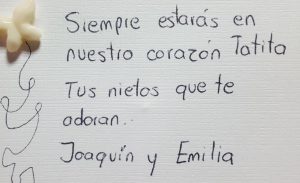 Siempre estarás en
nuestro corazón Tatita
Tus nietos que te
adoran..
Joaquín y Emilia